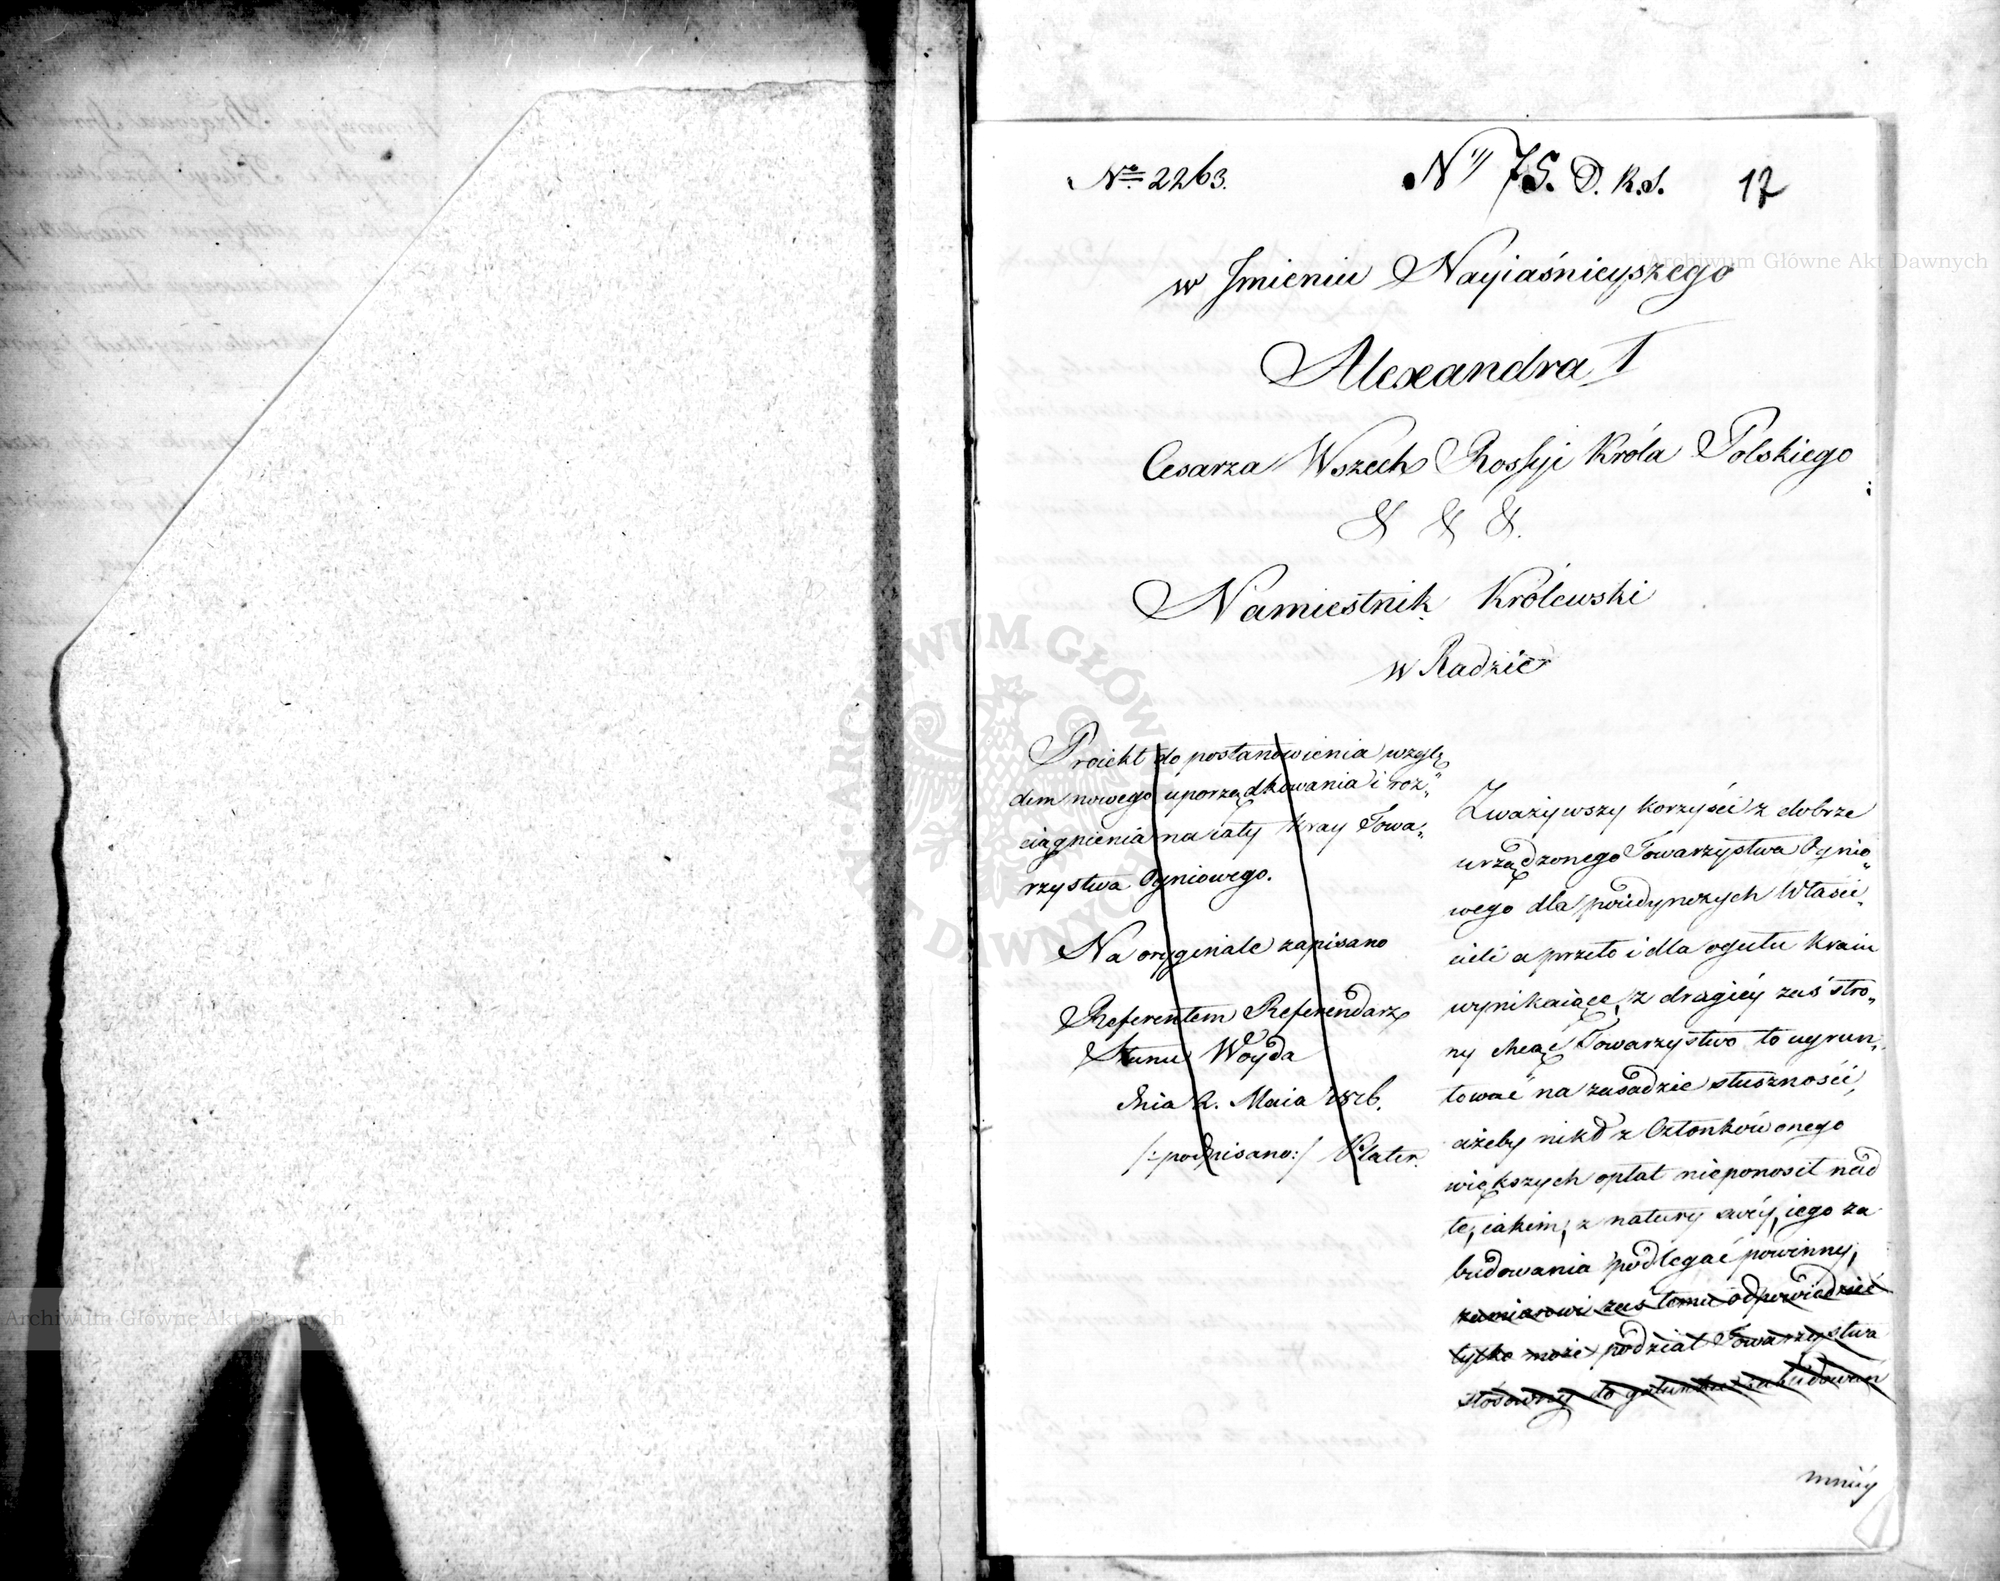 No 2263.
No 75. D. R. S.
17
w Jmieniu Nayiaśnieyszego
Alexandra I
Cesarza Wszech Rossyi Króla Polskiego
& & &.
Namiestnik Królewski
w Radzie
Proiekt do postanowienia wzglę
dem nowego uporządkowania i roz„
ciągnienia na cały kray Towa„
rzystwa Ogniowego.
Na oryginale zapisano
Referentem Referendarz
Stanu Woyda
dnia 2. Maia 1816.
/:podpisano:/ Plater.
Zważywszy korzyści z dobrze
urządzonego Towarzystwa Ognio„
wego dla poiedynczych Właści„
cieli a przeto i dla ogułu Kraiu
wynikaiące, z drugiéy zaś stro„
ny chcąc Towarzystwo to ugrun„
tować na zasadzie słuszności,
ażeby nikt z Członków onego
większych opłat nieponosił nad
te, iakim, z natury swéy, iego za
budowania podlegać powinny,
zamiarowi zaś temu odpowiedzieć
tylko może podział Towarzystwa
stósowny do gatunku zabudowań
mniéy
Archiwum Główne Akt Dawnych
Archiwum Główne Akt Dawnych
ARCHIWUM GŁÓWNE AKT DAWNYCH